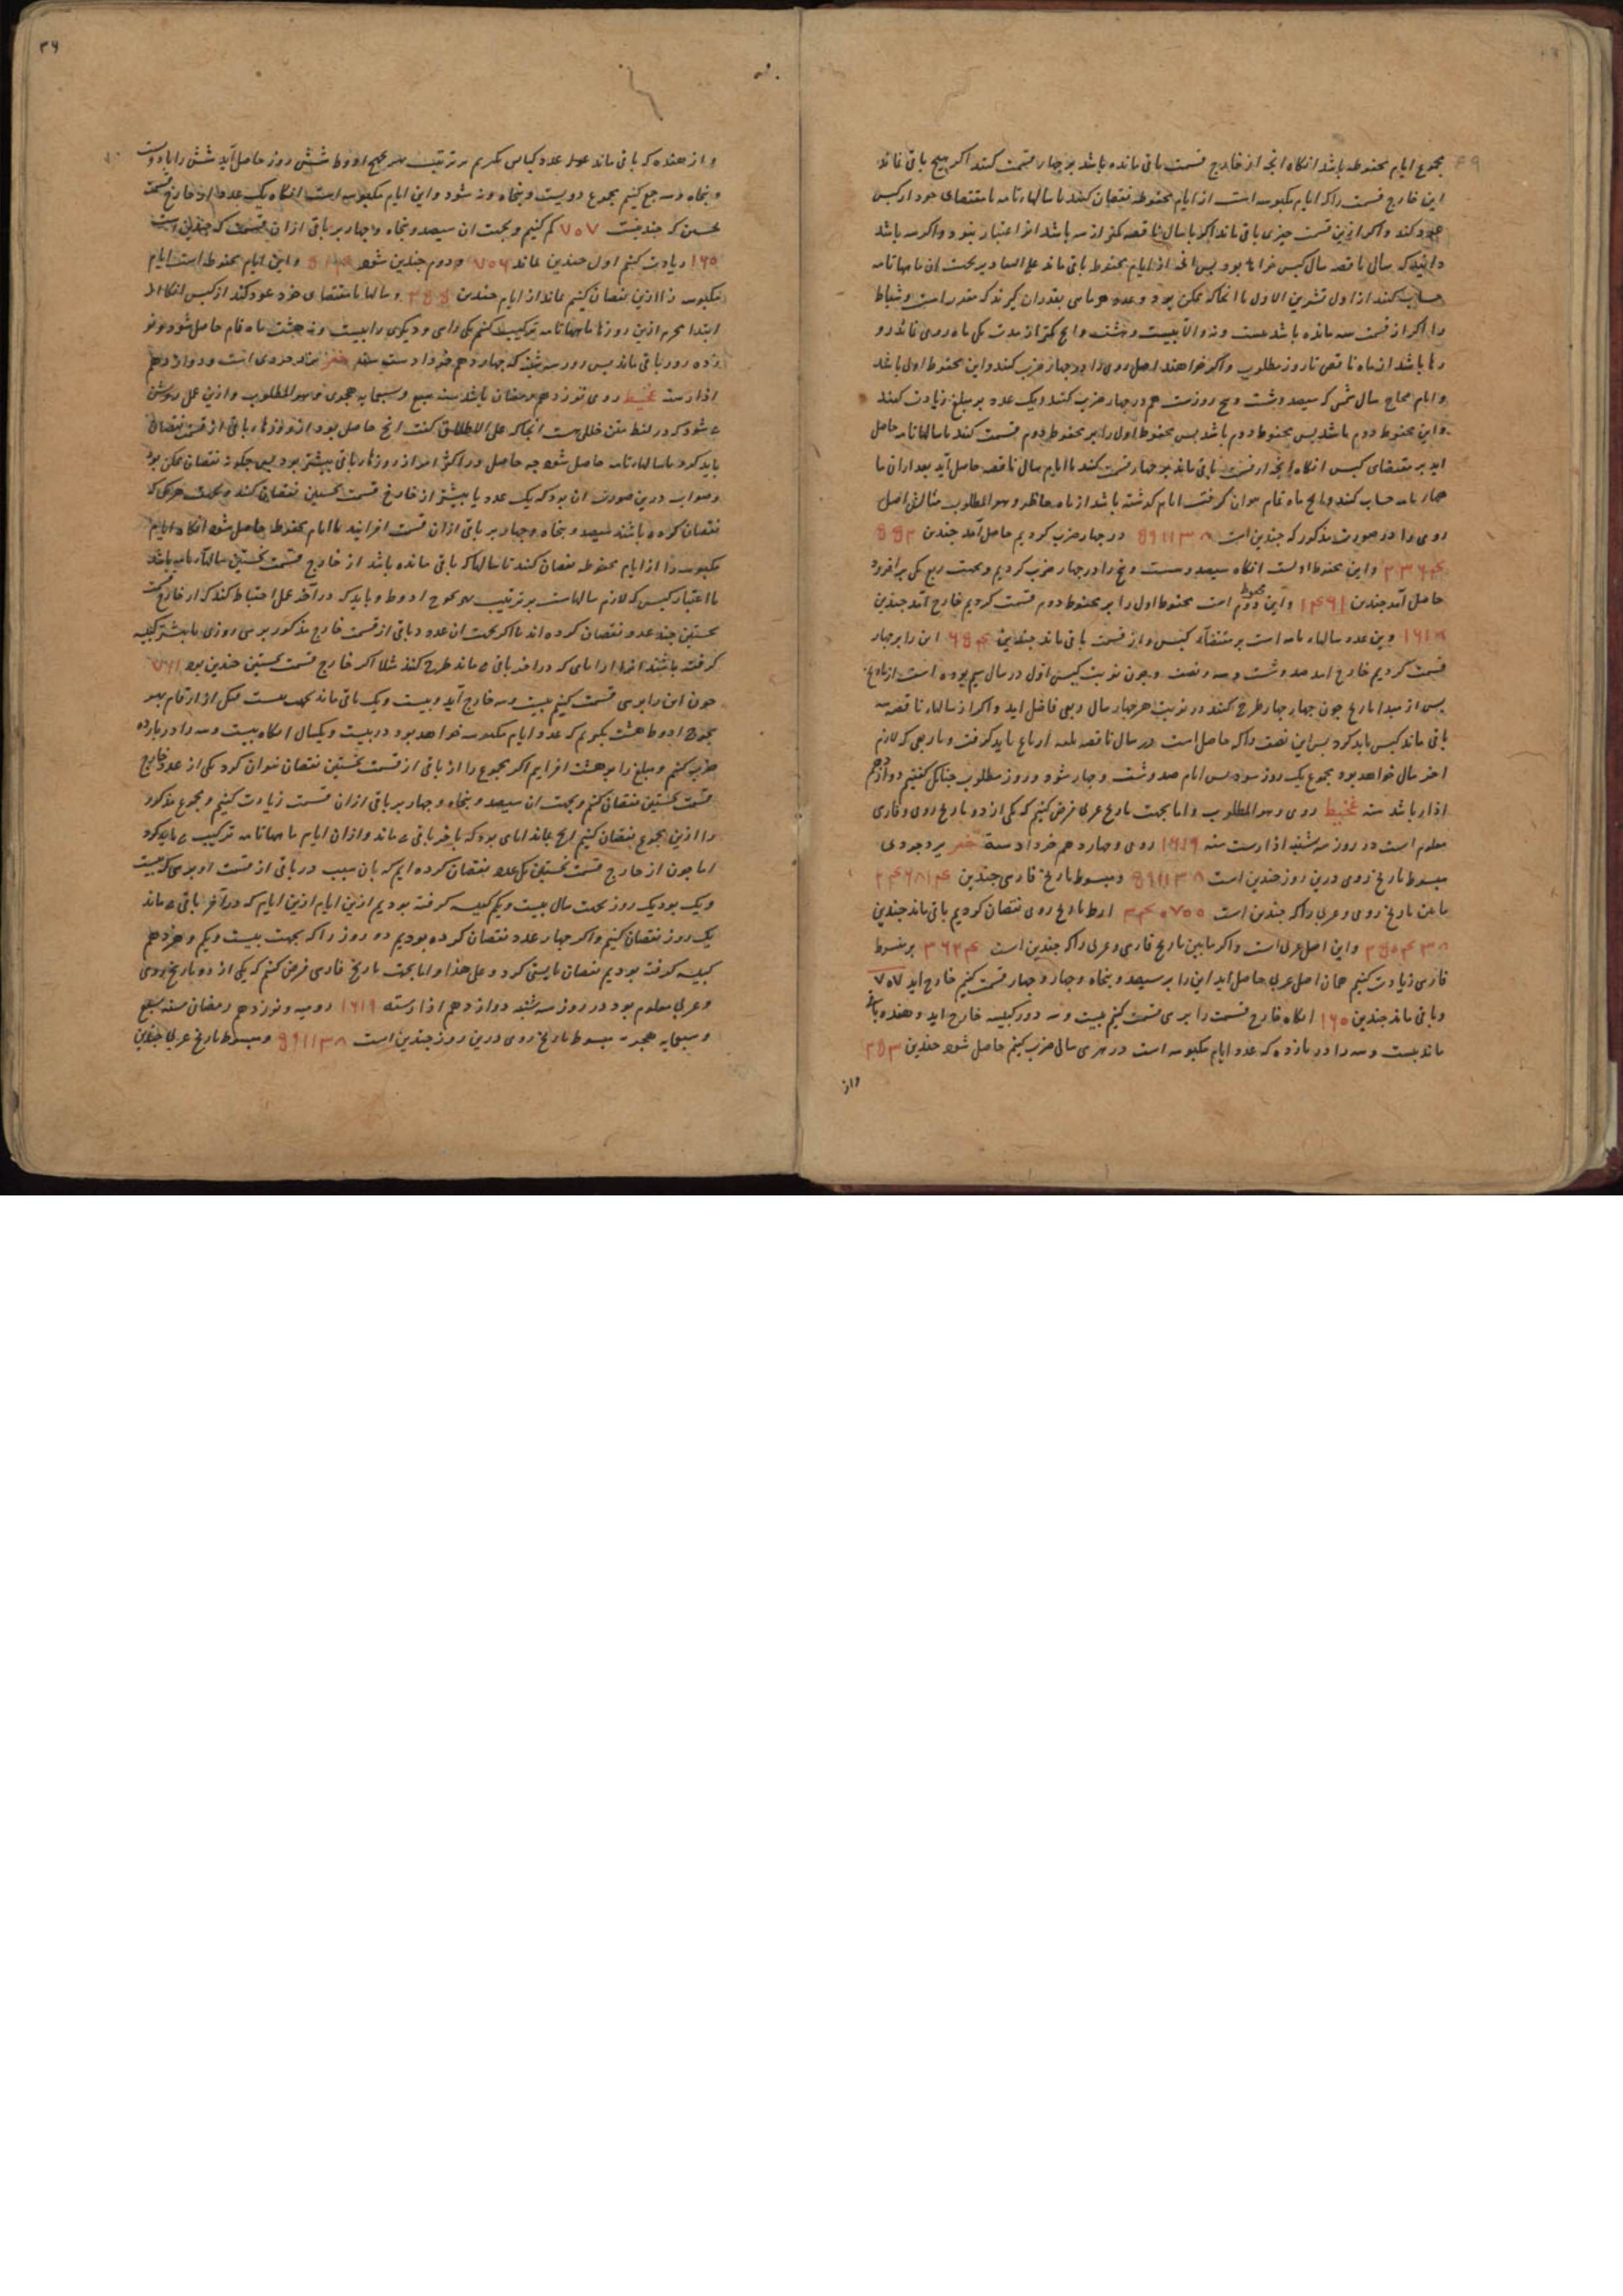 مجموع ایام محفوظه باشد انکاه انچه از خارج قسمت باقی مانده باشد بر چهار قسمت کنند اکر هیچ باقی نماند
این خارج قسمت را که ایام مکبوسه است از ایام محفوظه نقصان کنند تا سالهاء تامه بمقتضای خود از کبس
عود کند و اکر ازین قسمت چیزی باقی ماند
دانند که سال ناقصه سال کبس خواهد بود پس انچه از ایام محفوظ باقی ماند
حساب کنند از اول تشرین الاول تا انجا که ممکن بود و عدد هر ماهی بقدر ان کیرند که مقدر است و شباط
را اکر از قسمت سه مانده باشد بیست ونه و الا بیست و هشت و انچ کمتر از مدت یکی ماه رومی ماند روز
رها باشد از ماه ناقص تا روز مطلوب و اکر خواهند اصل رومی را در چهار ضرب کنند و این محفوظ اول باشد
و ایام سال شمسی که سیصد و شست و پنج روزست هم در چهار ضرب کنند و یک عدد بر مبلغ زیادت کنند
و این محفوظ دوم باشد پس محفوظ اول را بر محفوظ دوم قسمت کنند تا سالهاء تامه حاصل
اید بر مقتضای کبس انکاه انچه از قسمت باقی ماند بر چهار قسمت کنند تا ایام سال ناقصه حاصل آید بعد از ان
حساب کنند و انچ ماه تمام نتوان کرفت ایام کذشته باشد از ماه حاضر و هو المطلوب مثالش اصل
رومی را در صورت مذکور که چندین است ۵۹۱۱۳۸ در چهار ضرب کردیم حاصل آمد چندین
و این محفوظ اولست انکاه سیصد و شست و پنج را در چهار ضرب کردیم و بجهت ربع یکی بر افزود
حاصل آمد چندین ۱۴۶۱ و این محفوظ دوم است محفوظ اول را بر محفوظ دوم قسمت کردیم خارج آمد چندین
۱۶۱۸ و این عدد سالهاء تامه است بر مقتضاء کبس و از قسمت باقی ماند چندین این را بر چهار
قسمت کردیم خارج امد صد و شست و سه و نصف و چون نوبت کبس اول در سال سیم بوده است از تاریخ
پس از مبدا تاریخ چون چهار چهار طرح کنند در نوبت هر چهار سال ربعی فاضل اید و اکر از سالهاء ناقصه
باقی ماند کبس باید کرد پس این نصف را که حاصل است در سال ناقصه
اخر سال خواهد بود مجموع یک روز بود پس ایام صد و شست و چهار شود و روز مطلوب چنانک کفتیم دوازدهم
اذار باشد سنه غخیط رومی و هو المطلوب و اما بجهت تاریخ عربی فرض کنیم که یکی از دو تاریخ رومی و فارسی
معلوم است در روز سه شنبه اذارست سنه ۱۶۱۹ رومی و چهاردهم خرداد سنه یزدجردی
مبسوط تاریخ رومی درین روز چندین است ۵۹۱۱۳۸ و مبسوط تاریخ فارسی چندین ۲۴۶۸۱۴
ما بین تاریخ رومی و عربی را که چندین است ۳۴۰۷۰۰ از تاریخ رومی نقصان کردیم باقی ماند چندین
۲۵۰۴۳۸ و این اصل عربی است و اکر ما بین تاریخ فارسی و عربی را که چندین است ۳۶۲۴ بر مبسوط
فارسی زیادت کنیم همان اصل عربی حاصل اید این را بر سیصد و پنجاه و چهار قسمت کنیم خارج اید ۷۰۷
و باقی ماند چندین ۱۶۰ انکاه خارج قسمت را بر سی قسمت کنیم بیست و سه دور کبیسه خارج اید و هفده باقی
ماند بیست و سه را در یازده که عدد ایام مکبوسه است در هر سی سالی ضرب کنیم حاصل شود چندین ۲۵۳
واز
۳۶
و از هفده که باقی ماند عدد کبایس بکیریم بر ترتیب بهزیجوح ادوط شش روز حاصل آید شش را با دویست
و پنجاه و سه جمع کنیم مجموع دویست و پنجاه ونه شود و این ایام مکبوسه است انکاه یک عدد از خارج قسمت
نخستین که چندینست ۷۰۷ کم کنیم و بجهت ان سیصد و پنجاه و چهار بر باقی ازان قسمت که چندین است
۱۶۰ زیادت کنیم اول چندین بماند ۷۰۶ و دوم چندین شود ۵۱۴ و این ایام محفوظ است ایام
مکبوسه را ازین نقصان کنیم بماند از ایام چندین ۲۵۵ و سالها بمقتضای خود عود کند از کبس انکاه از
ابتدا محرم ازین روزها ماهها تامه ترکیب کنیم یکی را سی و دیکری را بیست ونه هشت ماه تمام حاصل شود و نو
زده روز باقی ماند پس روز سه شنبه که چهاردهم خرداد ست سنه یزدجردی است و دوازدهم
اذارست غخیط رومی نوزدهم رمضان باشد سنه سبع و سبعمایه هجری و هو المطلوب و ازین عمل روشن
می شود که در لفظ متن خللی هست انجا که علی الاطلاق کفت انچ حاصل بود از روزها باقی از قسمت نقصان
باید کرد تا سالهاء تامه حاصل شود چه حاصل در اکثر امر از روزها باقی بیشتر بود پس چکونه نقصان ممکن بود
و صواب درین صورت ان بود که یک عدد یا بیشتر از خارج قسمت نخستین نقصان کنند و بجهت هر یکی که
نقصان کرده باشند سیصد و پنجاه و چهار بر باقی ازان قسمت افزایند تا ایام محفوظه حاصل شود انکاه ایام
مکبوسه را از ایام محفوظه نقصان کنند تا سالها که باقی مانده باشد از خارج قسمت نخستین سالهاء تامه باشد
با اعتبار کبس که لازم سالهاست بر ترتیب بهزیجوح ادوط و باید که در آخر عمل احتیاط کنند که از خارج قسمت
نخستین چند عدد نقصان کرده اند تا اکر بجهت ان عدد و باقی از قسمت خارج مذکور بر سی روزی یا بیشتر کبیسه
کرفته باشند انرا از ایامی که در اخر باقی می ماند طرح کنند مثلا اکر خارج قسمت نخستین چندین بود ۷۱۱
چون این را بر سی قسمت کنیم بیست و سه خارج آید و بیست و یک باقی ماند
بهزیجوح ادوط هشت بکیریم که عدد ایام مکبوسه خواهد بود در بیست و یکسال انکاه بیست و سه را در یازده
ضرب کنیم و مبلغ را بر هشت افزاییم اکر مجموع را از باقی از قسمت نخستین نقصان نتوان کرد یکی از عدد خارج
قسمت نخستین نقصان کنیم و بجهت ان سیصد و پنجاه و چهار بر باقی ازان قسمت زیادت کنیم و مجموع مذکور
را ازین مجموع نقصان کنیم انچ بماند ایامی بود که باخر باقی می ماند و ازان ایام ماهها تامه ترکیب می باید کرد
اما چون از خارج قسمت نخستین یک عدد نقصان کرده ایم که بان سبب در باقی از قسمت او بر سی که بیست
و یک بود یک روز بجهت سال بیست و یکم کبیسه کرفته بودیم ازین ایام که در آخر باقی می ماند
یک روز نقصان کنیم و اکر چهار عدد نقصان کرده بودیم دو روز را که بجهت بیست و یکم و هژدهم
کبیسه کرفته بودیم نقصان بایستی کرد و علی هذا و اما بجهت تاریخ فارسی فرض کنیم که یکی از دو تاریخ رومی
و عربی معلوم بود در روز سه شنبه دوازدهم اذارسنه ۱۶۱۹ رومیه و نوزدهم رمضان سنه سبع
و سبعمایه هجریه مبسوط تاریخ رومی درین روز چندین است ۵۹۱۱۳۸ و مبسوط تاریخ عربی چندین